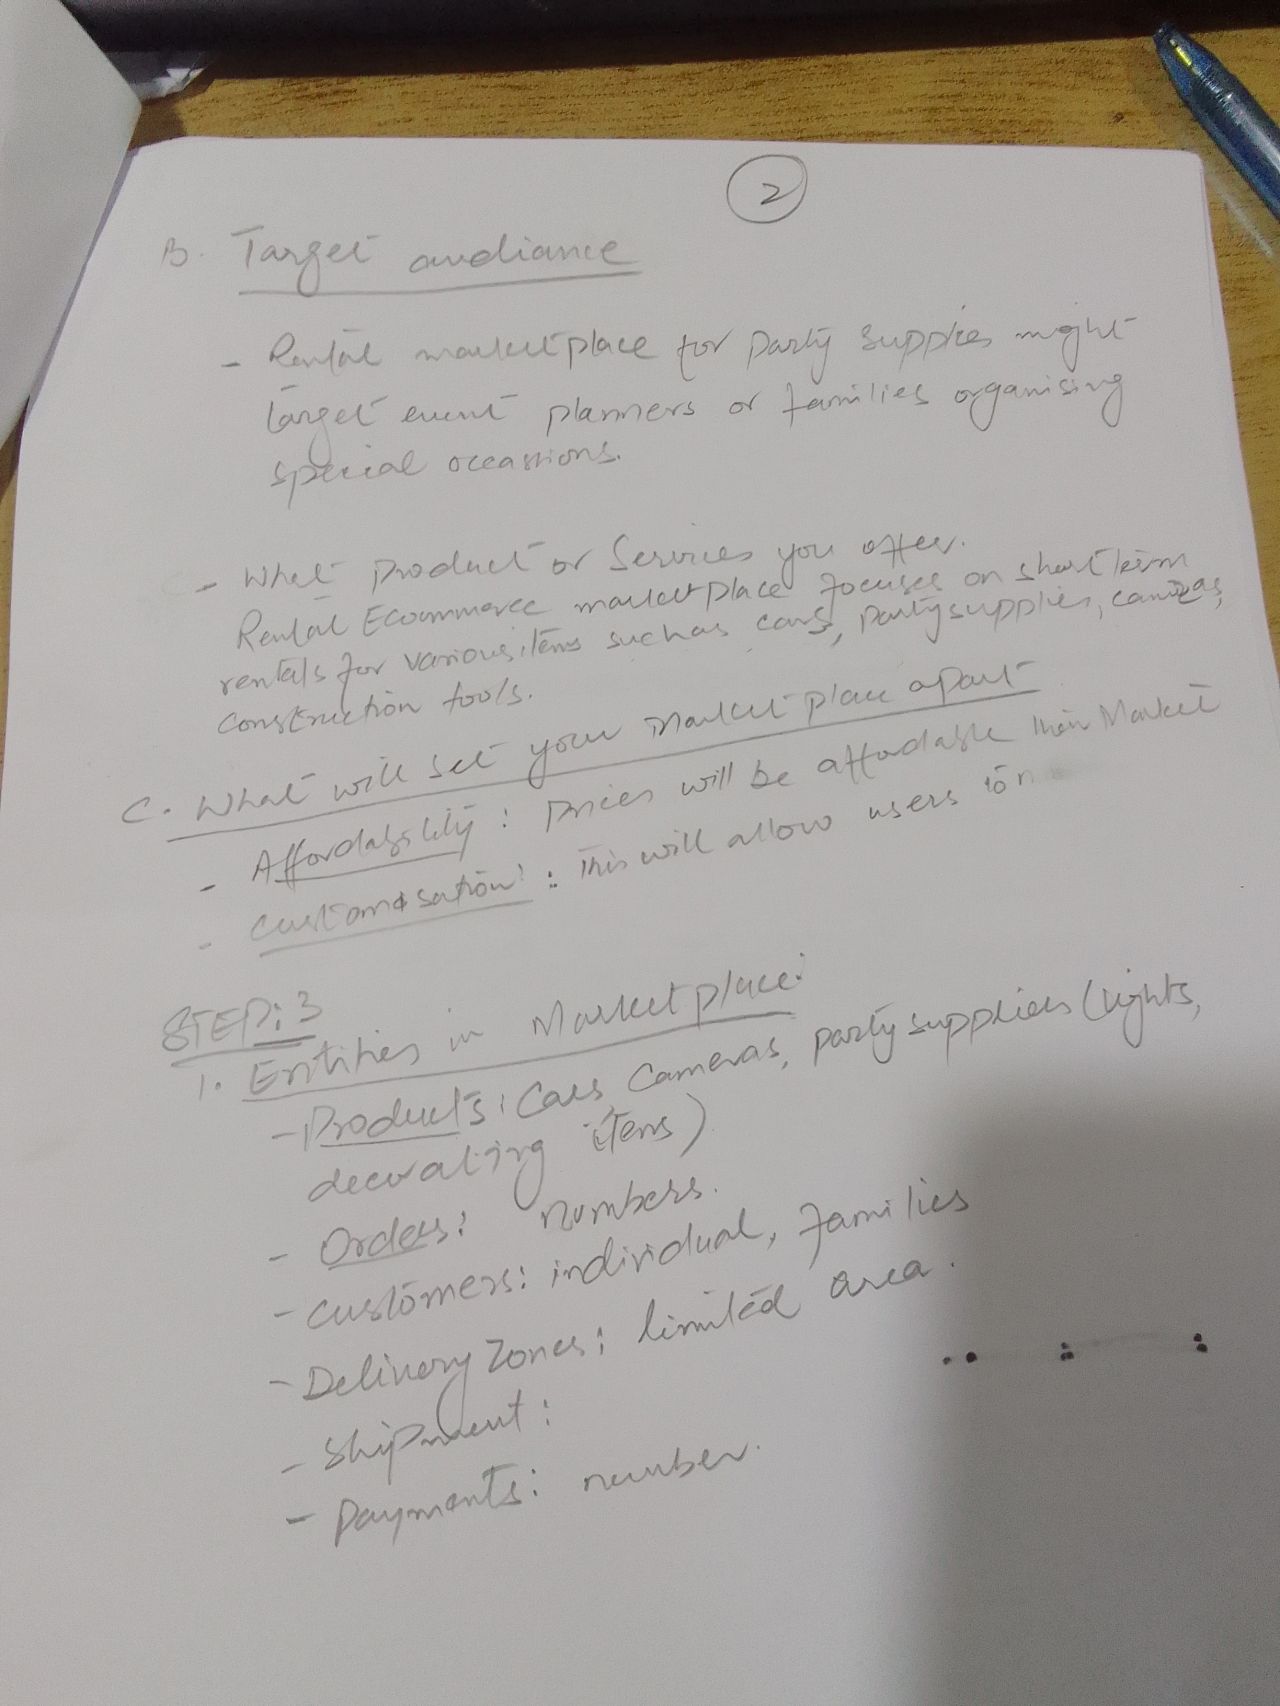 2
B. Target audiance
- Rental marketplace for party supplies might
target event planners or families organising
special occassions.
- What product or Services you offer.
Rental Ecommerce marketplace focuses on short term
rentals for various items such as cars, party supplies, cameras,
construction tools.
C. What will set your market place apart
- Affordability : prices will be affordable then Market
- customisation : This will allow users to
STEP: 3
1. Entities in Marketplace:
- Products: Cars, Cameras, party suppliers (lights,
decorating items)
- Orders: numbers.
- customers: individual, families
- Delivery Zones: limited area.
- Shipment:
- Payments: number.